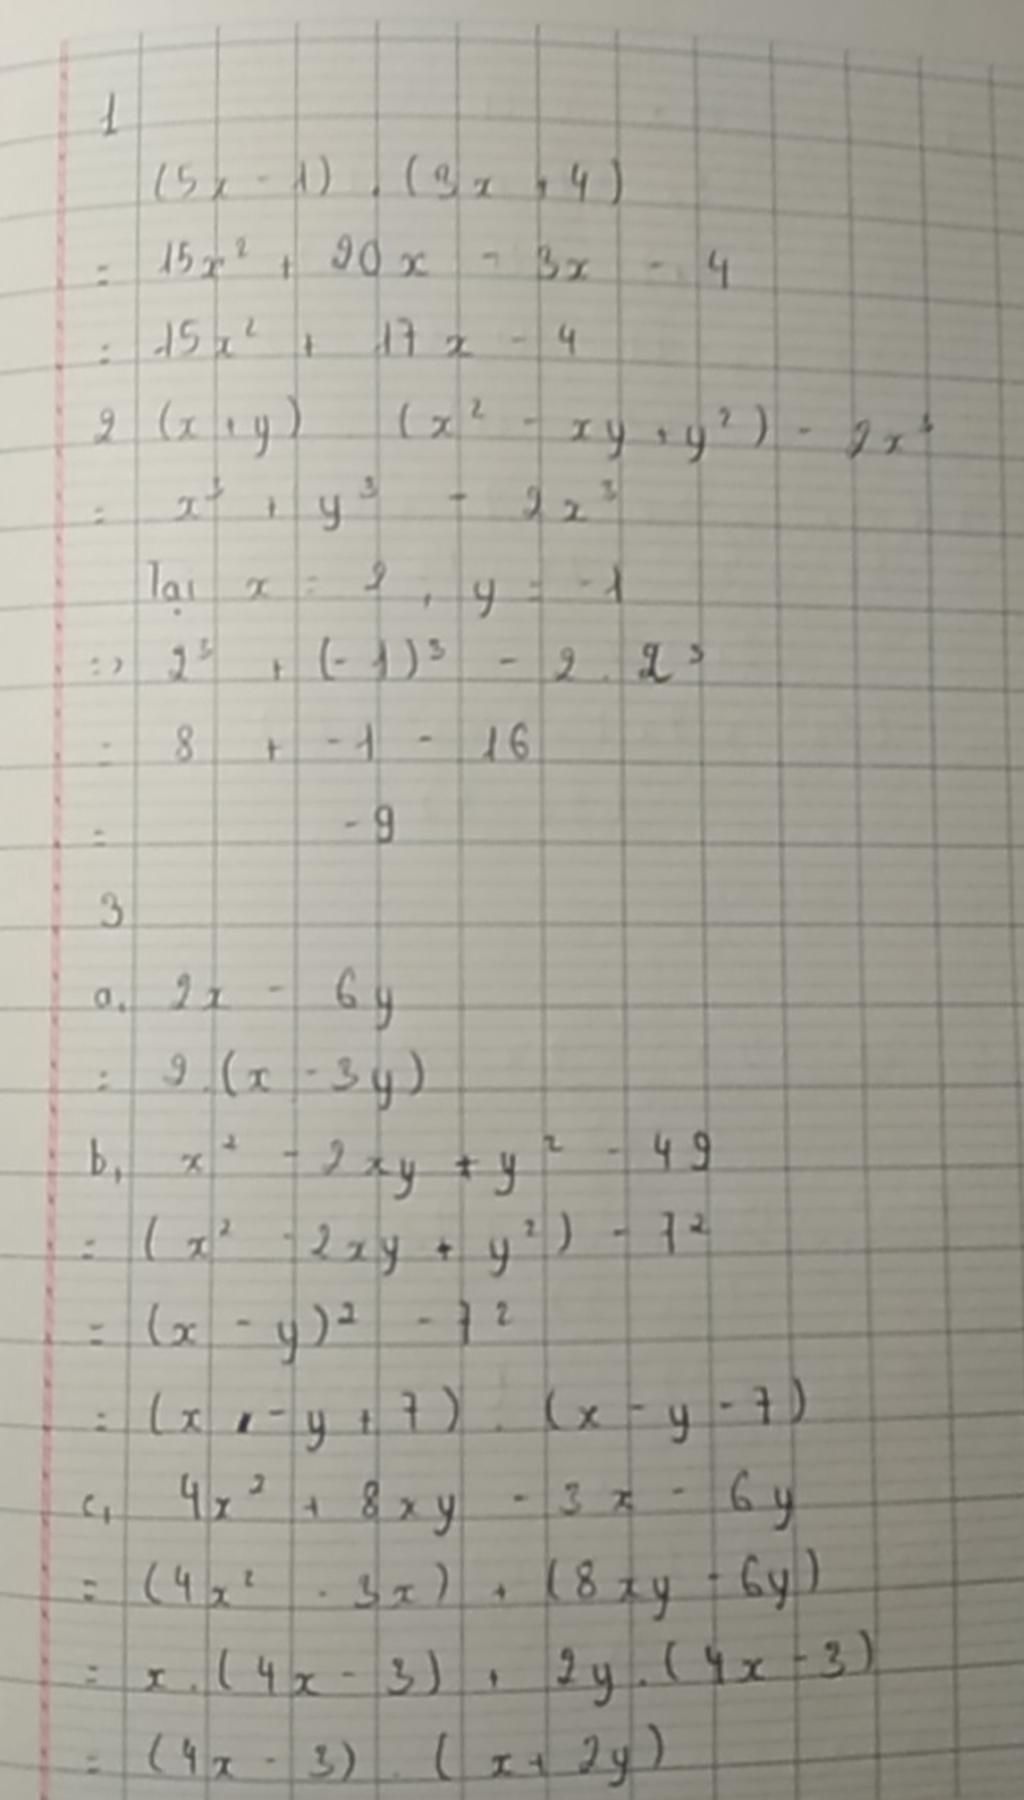 1
(5x - 1) . (3x + 4)
= 15x² + 20x - 3x - 4
= 15x² + 17x - 4
2 (x + y) (x² - xy + y²) - 2x³
= x³ + y³ - 2x³
Tại x = 2, y = -1
=> 2³ + (-1)³ - 2 . 2³
= 8 + -1 - 16
= -9
3
a, 2x - 6y
= 2.(x - 3y)
b, x² - 2xy + y² - 49
= (x² - 2xy + y²) - 7²
= (x - y)² - 7²
= (x - y + 7) . (x - y - 7)
c, 4x² + 8xy - 3x - 6y
= (4x² - 3x) + (8xy - 6y)
= x.(4x - 3) + 2y.(4x - 3)
= (4x - 3) . (x + 2y)